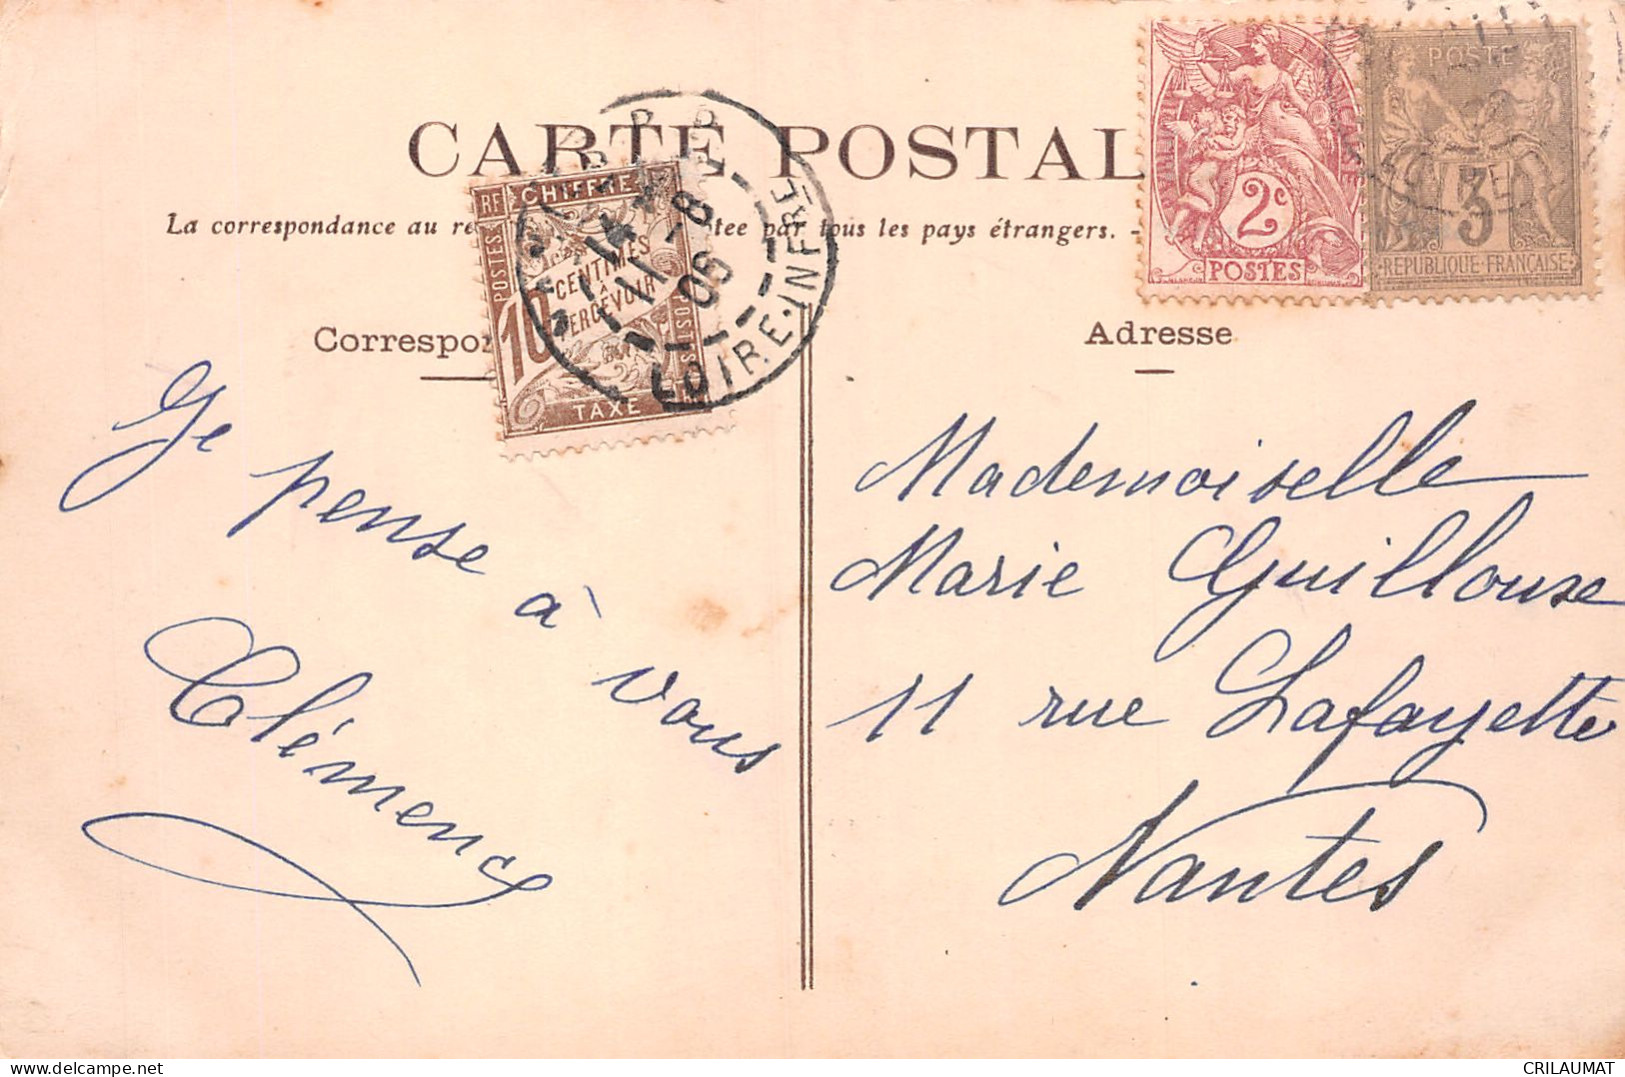 CARTE POSTAL
La correspondance au re tée par tous les pays étrangers. -
Correspon
Adresse
RF CHIFFRE
POSTES
10 CENTIMES
À
PERCEVOIR
POSTES
TAXE
NANTES
11 -8
06
LOIRE-INFRE
2c
POSTES
POSTE
3
REPUBLIQUE FRANÇAISE
Je pense à vous
Clémence
Mademoiselle
Marie Guillouse
11 rue Lafayette
Nantes
CRILAUMAT